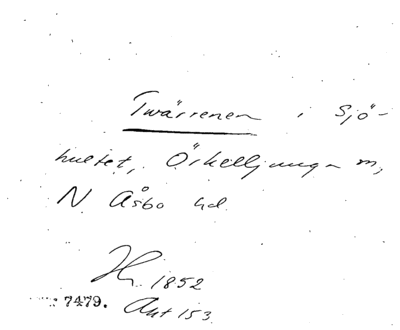 Twärrenen i Sjö-
hultet, Örkelljunga m,
N Åsbo hd
1852
7479. Akt 153